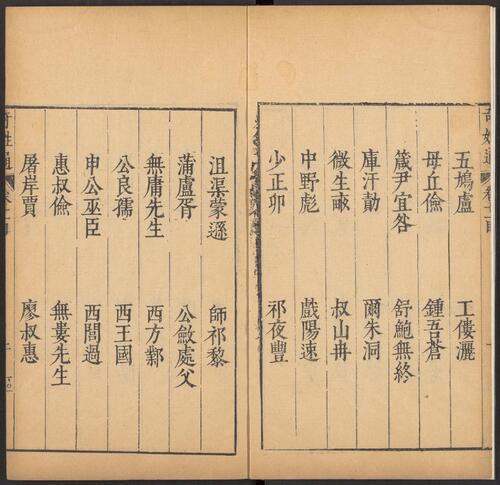 奇姓通
五鳩盧
工僂灑
毋丘儉
鍾吾蒼
箴尹宜咎
舒鮑無終
庫汗勣
爾朱洞
微生畝
叔山冉
中野彪
戲陽速
少正卯
祁夜豐
沮渠蒙遜
師祁黎
蒲盧胥
公斂處父
無庸先生
西方鄴
公良孺
西王國
申公巫臣
西閭過
惠叔儉
無婁先生
屠岸賈
廖叔惠
奇姓通